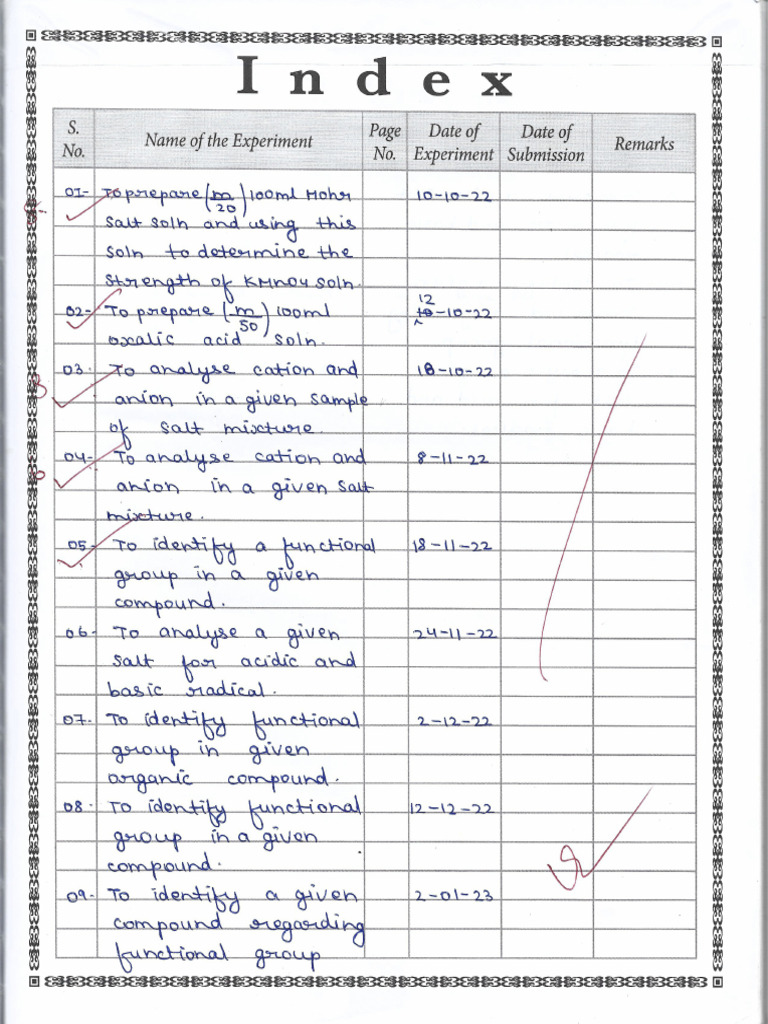 Index
S. No. Name of the Experiment Page No. Date of Experiment Date of Submission Remarks
01- To prepare (m/20) 100ml Mohr 10-10-22
salt soln and using this
soln to determine the
strength of KMnO4 soln.
12
02- To prepare (m/50) 100ml 10-10-22
oxalic acid soln.
03. To analyse cation and 18-10-22
anion in a given sample
of salt mixture.
04- To analyse cation and 8-11-22
anion in a given salt
mixture.
05- To identify a functional 18-11-22
group in a given
compound.
06- To analyse a given 24-11-22
salt for acidic and
basic radical.
07- To identify functional 2-12-22
group in given
organic compound.
08. To identify functional 12-12-22
group in a given
compound.
09- To identify a given 2-01-23
compound regarding
functional group